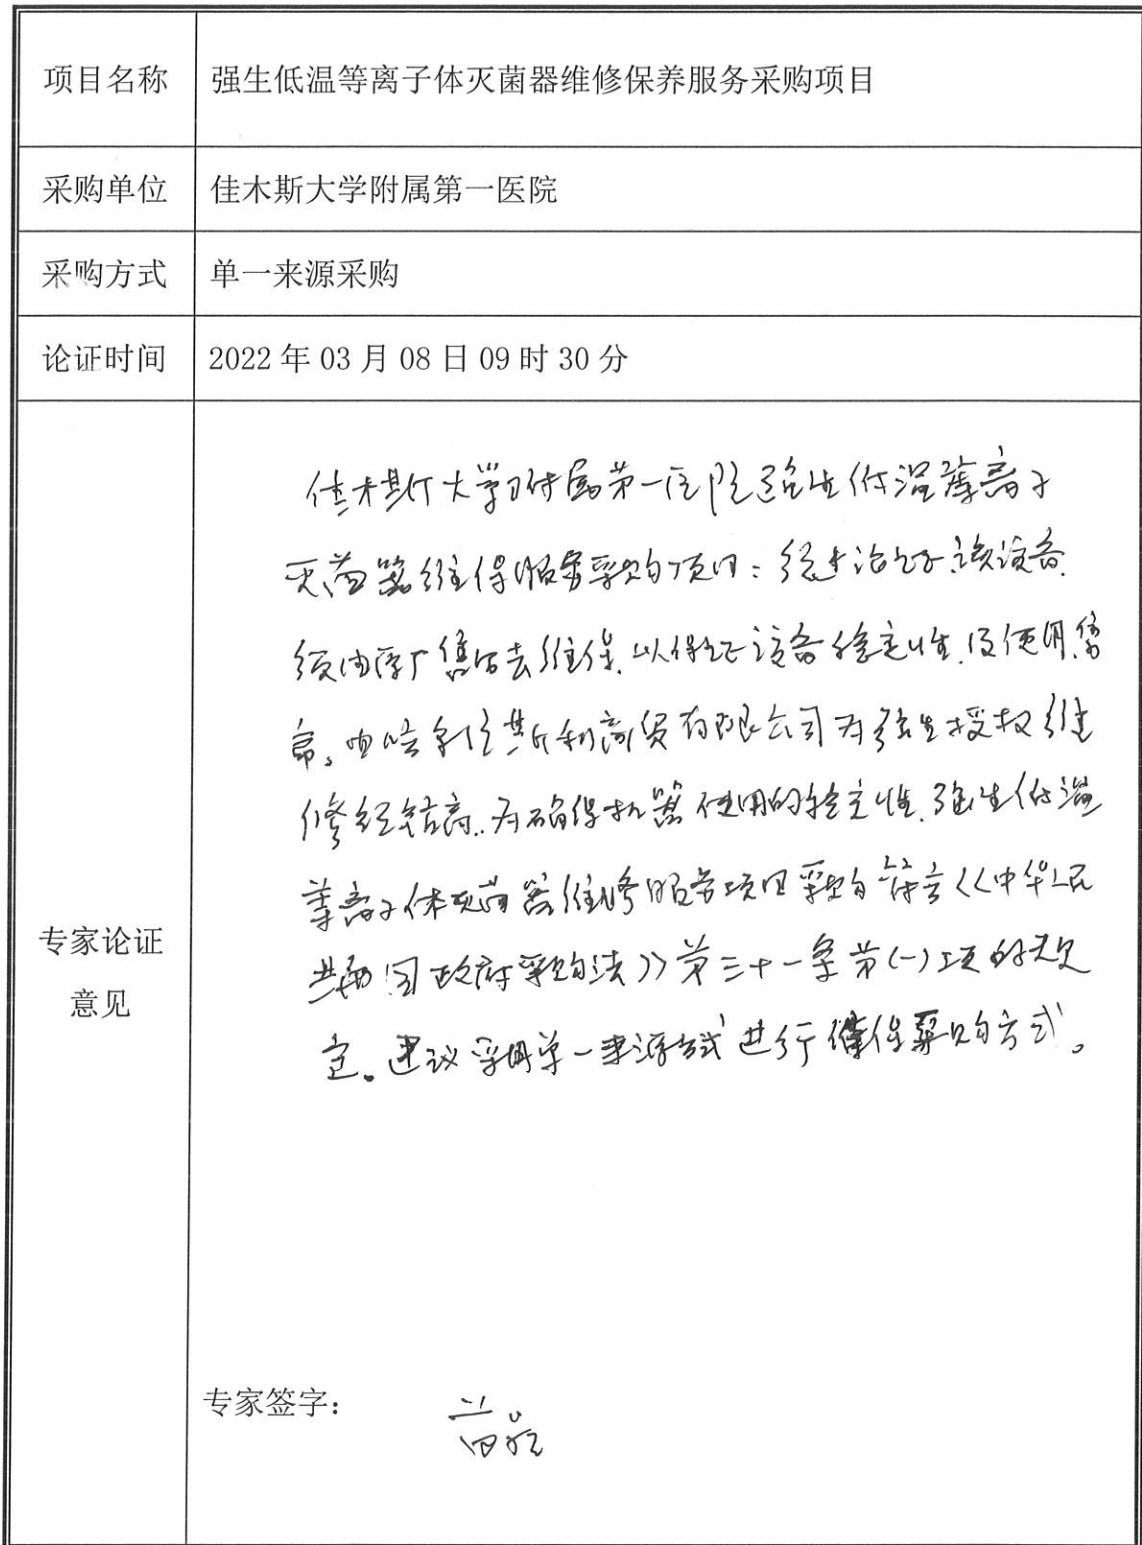 项目名称 强生低温等离子体灭菌器维修保养服务采购项目
采购单位 佳木斯大学附属第一医院
采购方式 单一来源采购
论证时间 2022年03月08日09时30分
专家论证意见
佳木斯大学附属第一医院强生低温等离子
灭菌器维保服务采购项目:经讨论该设备
须由原厂售后去维保,以保证设备稳定性,及使用寿
命。斯利商贸有限公司为强生授权维
修经销商,为确保机器使用的稳定性,强生低温
等离子体灭菌器维修服务项目采购符合《中华人民
共和国政府采购法》第三十一条第(一)项的规
定。建议采用单一来源方式进行维保采购方式。
专家签字: